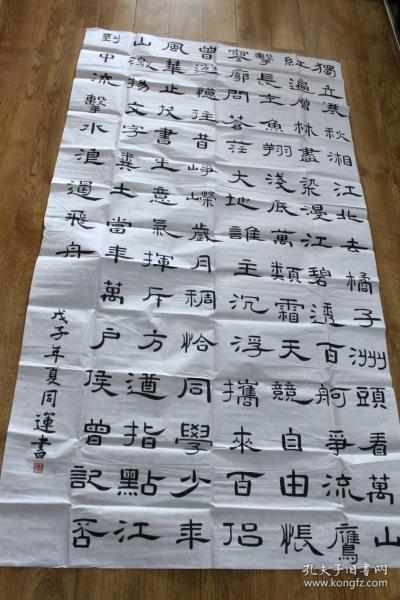 獨立寒秋湘江北去橘子洲頭看萬山
紅遍層林盡染漫江碧透百舸爭流鷹
擊長空魚翔淺底萬類霜天競自由悵
寥廓問蒼茫大地誰主沉浮攜來百侶
曾遊憶往昔崢嶸歲月稠恰同學少年
風華正茂書生意氣揮斥方遒指點江
山激揚文字糞土當年萬戶侯曾記否
到中流擊水浪遏飛舟
戊子年夏周運書
孔夫子旧书网
www.kongfz.com